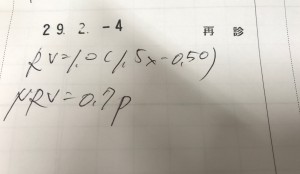 29. 2. -4 再診
RV=1.0(1.5x-0.50)
NRV=0.7p